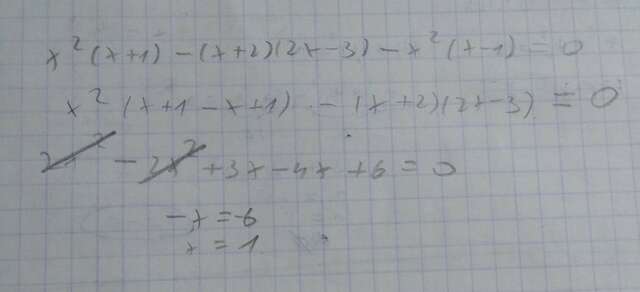 x²(x+1) - (x+2)(2x-3) - x²(x-1) = 0
x²(x+1-x+1) - (x+2)(2x-3) = 0
2x² - 2x² + 3x - 4x + 6 = 0
-x = -6
x = 1